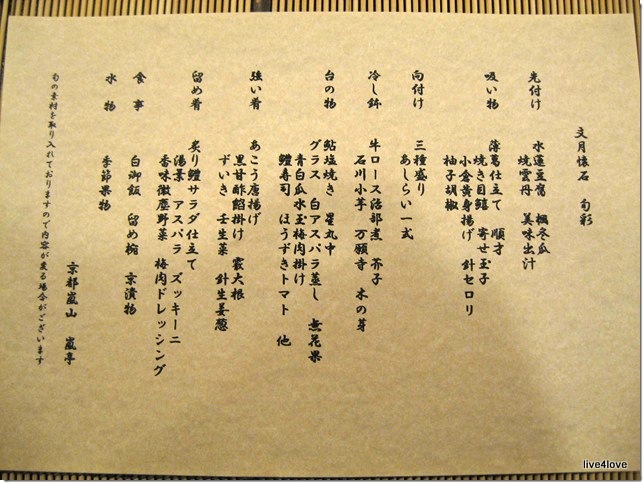 文月懐石 旬彩
先付け 水蓮豆腐 楓冬瓜
焼雲丹 美味出汁
吸い物 薄葛仕立て 順才
焼き目鱧 寄せ玉子
小倉黄身揚げ 針セロリ
柚子胡椒
向付け 三種盛り
あしらい一式
冷し鉢 牛ロース治部煮 芥子
石川小芋 万願寺 木の芽
台の物 鮎塩焼き 星丸中
グラス 白アスパラ蒸し 無花果
青白瓜水玉梅肉掛け
鱧寿司 ほうずきトマト 他
強い肴 あこう唐揚げ
黒甘酢餡掛け 雲大根
ずいき 壬生菜 針生姜葱
留め肴 炙り鱧サラダ仕立て
湯葉 アスパラ ズッキーニ
香味微塵野菜 梅肉ドレッシング
食事 白御飯 留め椀 京漬物
水物 季節果物
京都嵐山 嵐亭
旬の素材を取り入れておりますので内容が変る場合がございます
live4love